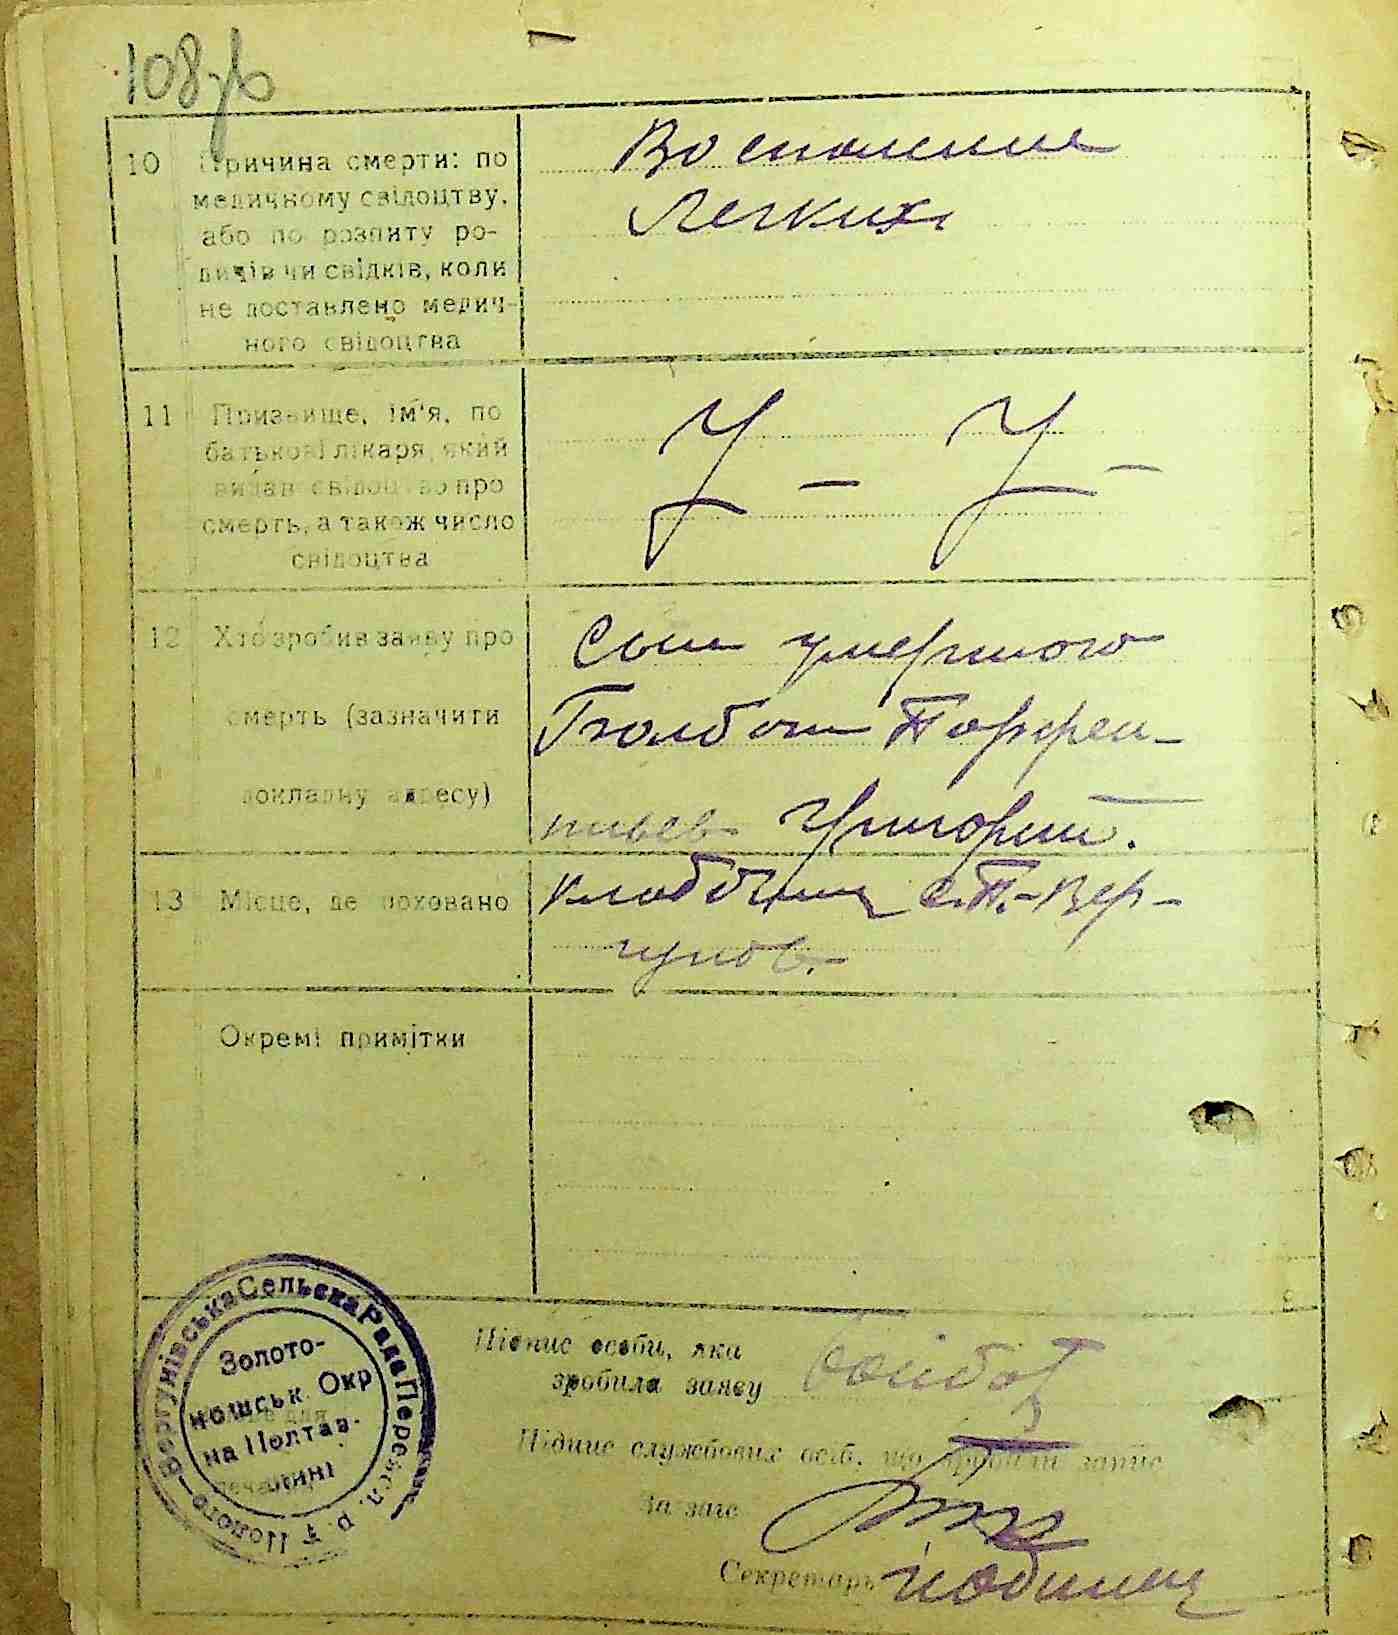 108зв
10 Причина смерти: по
медичному свідоцтву,
або по розпиту ро-
дичів чи свідків, коли
не доставлено медич-
ного свідоцтва
Восполение
Легких
11 Призвище, ім'я, по
батькові лікаря, який
видав свідоцтво про
смерть, а також число
свідоцтва
12 Хто зробив заяву про
смерть (зазначити
докладну адресу)
Сын умершого
Парфен-
тиев Григорий.
13 Місце, де поховано
Кладбище с.П.-Вер-
гунов.
Окремі примітки
Підпис особи, яка
зробила заяву
Підпис службових осіб, що зробили запис
За загс
Секретарь
Вергунівська Сельска Рада Перейсл. р.
Золото-
ношськ. Окр
на Полтав-
щині